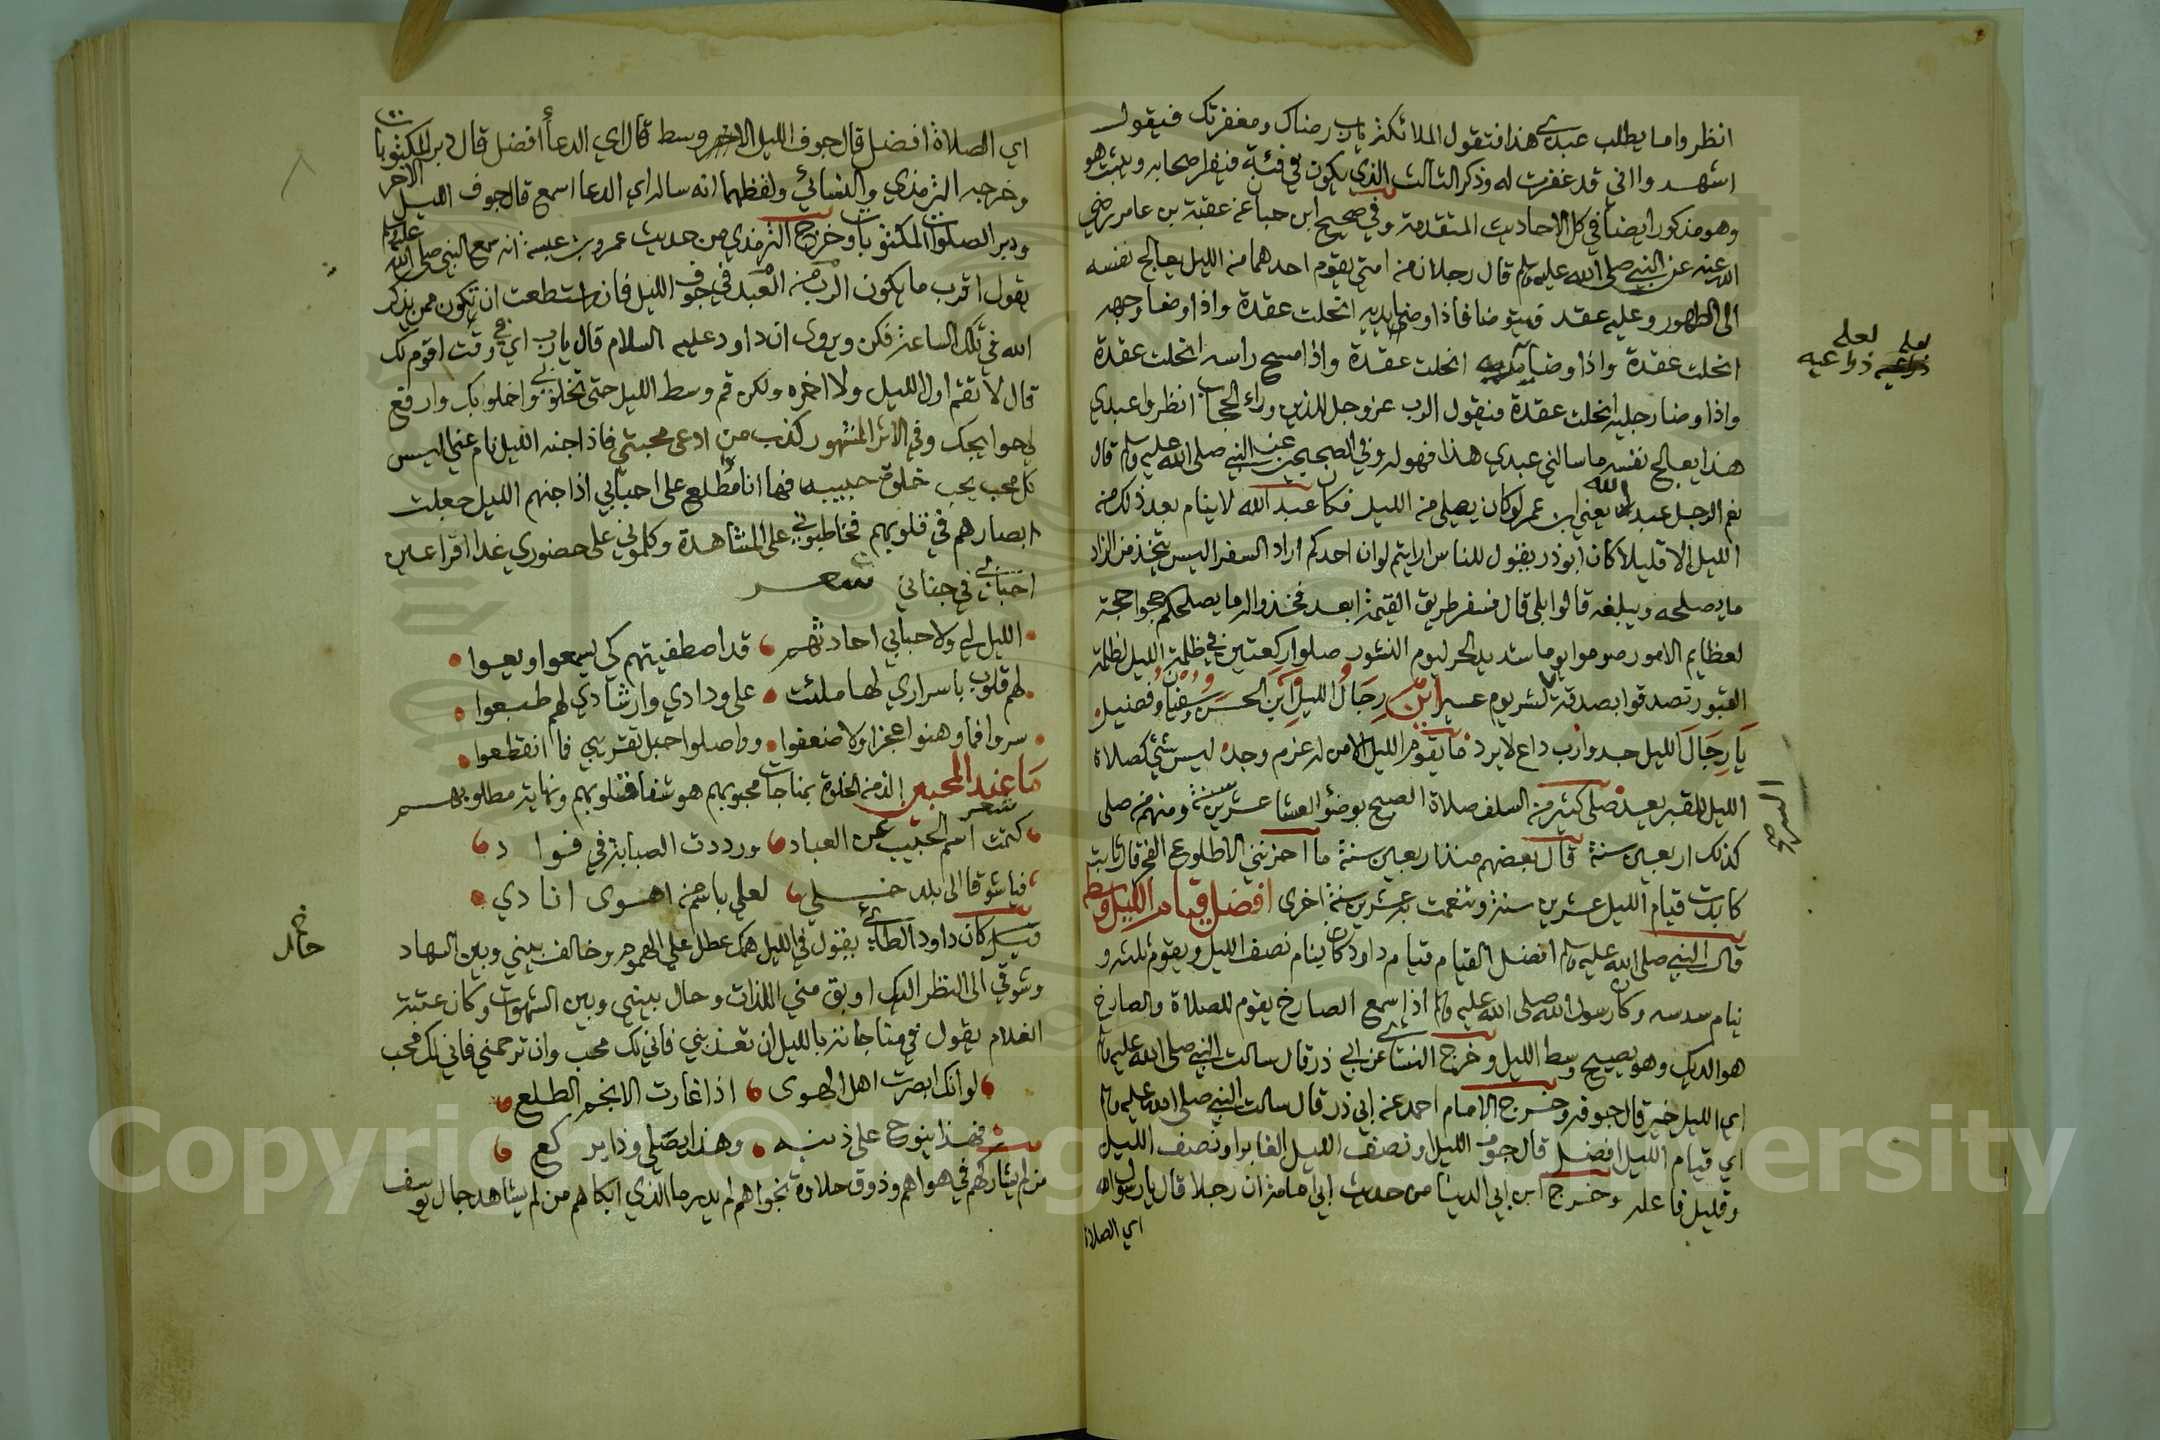 انظروا ما يطلب عبدي هذا فتقول الملائكة يا رب رضاك ومغفرتك فيقول
اشهدوا اني قد غفرت له وذكر الثالث الذي يكون في فئة فيفر اصحابه ويثبت هو
وهو مذكور ايضا في كل الاحاديث المتقدمة وفي صحيح ابن حبان عن عقبة بن عامر رضي
الله عنه عن النبي صلى الله عليه وسلم قال رجلان من امتي يقوم احدهما من الليل يعالج نفسه
الى الطهور وعليه عقد فيتوضا فاذا وضا يديه انحلت عقدة واذا وضا وجهه
انحلت عقدة واذا وضا انحلت عقدة واذا مسح راسه انحلت عقدة
لعله ذراعيه
لعله ذراعيه
واذا وضا رجليه انحلت عقدة فيقول الرب عز وجل للذين وراء الحجاب انظروا عبدي
هذا يعالج نفسه ما سالني عبدي هذا فهو له وفي الصحيحين عن النبي صلى الله عليه وسلم قال
نعم الرجل عبد الله يعني ابن عمر لو كان يصلي من الليل فكان عبد الله لا ينام بعد ذلك من
الليل الا قليلا كان ابو ذر يقول للناس ارايتم لو ان احدكم اراد السفر اليس يتخذ من الزاد
ما يصلحه ويبلغه قالوا بلى قال فسفر طريق القيمة ابعد فخذوا له ما يصلحكم حجوا حجة
لعظايم الامور صوموا يوما شديد الحر ليوم النشور صلوا ركعتين في ظلمة الليل لظلمة
القبور تصدقوا بصدقة لشر يوم عسير اين رجال الليل اين الحسن وسفيان وفضيل
يا رجال الليل جدوا رب داع لا يرد ما يقوم الليل الا من له عزم وجد ليس شيء كصلاة
الليل للقبر يعد صلى كثير من السلف صلاة الصبح بوضؤ العشا عشرين سنة ومنهم من صلى
كذلك اربعين سنة قال بعضهم منذ اربعين سنة ما احزنني الا طلوع الفجر قال ثابت
كابدت قيام الليل عشرين سنة وتنعمت به عشرين سنة اخرى افضل قيام الليل وسطه
قال النبي صلى الله عليه وسلم افضل القيام قيام داود كان ينام نصف الليل ويقوم ثلثه و
ينام سدسه وكان رسول الله صلى الله عليه وسلم اذا سمع الصارخ يقوم للصلاة والصارخ
هو الديك وهو يصيح وسط الليل وخرج النسائي عن ابي ذر قال سالت النبي صلى الله عليه وسلم
اي الليل خير قال جوفه وخرج الامام احمد عن ابي ذر قال سالت النبي صلى الله عليه وسلم
اي قيام الليل افضل قال جوف الليل او نصف الليل الغابر او نصف الليل
وقليل فاعله وخرج ابن ابي الدنيا من حديث ابي امامة ان رجلا قال يا رسول الله
اي الصلاة
اي الصلاة افضل قال جوف الليل الاخر وسط قال اي الدعا افضل قال دبر المكتوبات
وخرجه الترمذي والنسائي ولفظهما انه ساله اي الدعا اسمع قال جوف الليل الاخر
ودبر الصلوات المكتوبات وخرج الترمذي من حديث عمرو بن عبسة انه سمع النبي صلى الله عليه وسلم
يقول اقرب ما يكون الرب من العبد في جوف الليل فان استطعت ان تكون ممن يذكر
الله في تلك الساعة فكن ويروى ان داود عليه السلام قال يا رب اي وقت اقوم لك
قال لا تقم اول الليل ولا اخره ولكن قم وسط الليل حتى تخلو بي واخلو بك وارفع
لي حوايجك وفي الاثر المشهور كذب من ادعى محبتي فاذا جنه الليل نام عني اليس
كل محب يحب خلوة حبيبه فها انا مطلع على احبابي اذا جنهم الليل جعلت
ابصارهم في قلوبهم فخاطبوني على المشاهدة وكلموني على حضوري غدا اقر اعين
احبابي في جناني شعر
الليل لي ولاحبابي احادثهم قد اصطفيتهم كي يسمعوا ويعوا
لهم قلوب باسراري لها ملئت على ودادي وارشادي لهم طبعوا
سروا فما وهنوا عجزا ولا ضعفوا وواصلوا حبل تقريبي فما انقطعوا
ما عند المحبين الذ من الخلوة بمناجات محبوبهم هو شفا قلوبهم ونهاية مطلوبهم
شعر
كتمت اسم الحبيب عن العباد ورددت الصبابة في فواد
فيا شوقا الى بلد خلي لعلي باسم من اهوى انادي
قيل كان داود الطائي يقول في الليل همك عطل على الهموم وخالف بيني وبين السهاد
خ حالف
وشوقي الى النظر اليك اوبق مني اللذات وحال بيني وبين الشهوات وكان عتبة
الغلام يقول في مناجاته بالليل ان تعذبني فاني لك محب وان ترحمني فاني لك محب
لو انك ابصرت اهل الهوى اذا غارت الانجم الطلع
فهذا ينوح على ذنبه وهذا يصلي وذا يركع
من لم يشاركهم في هواهم وذوق حلاوة نجواهم لم يدر ما الذي ابكاهم من لم يشاهد جمال يوسف
Copyright © King University